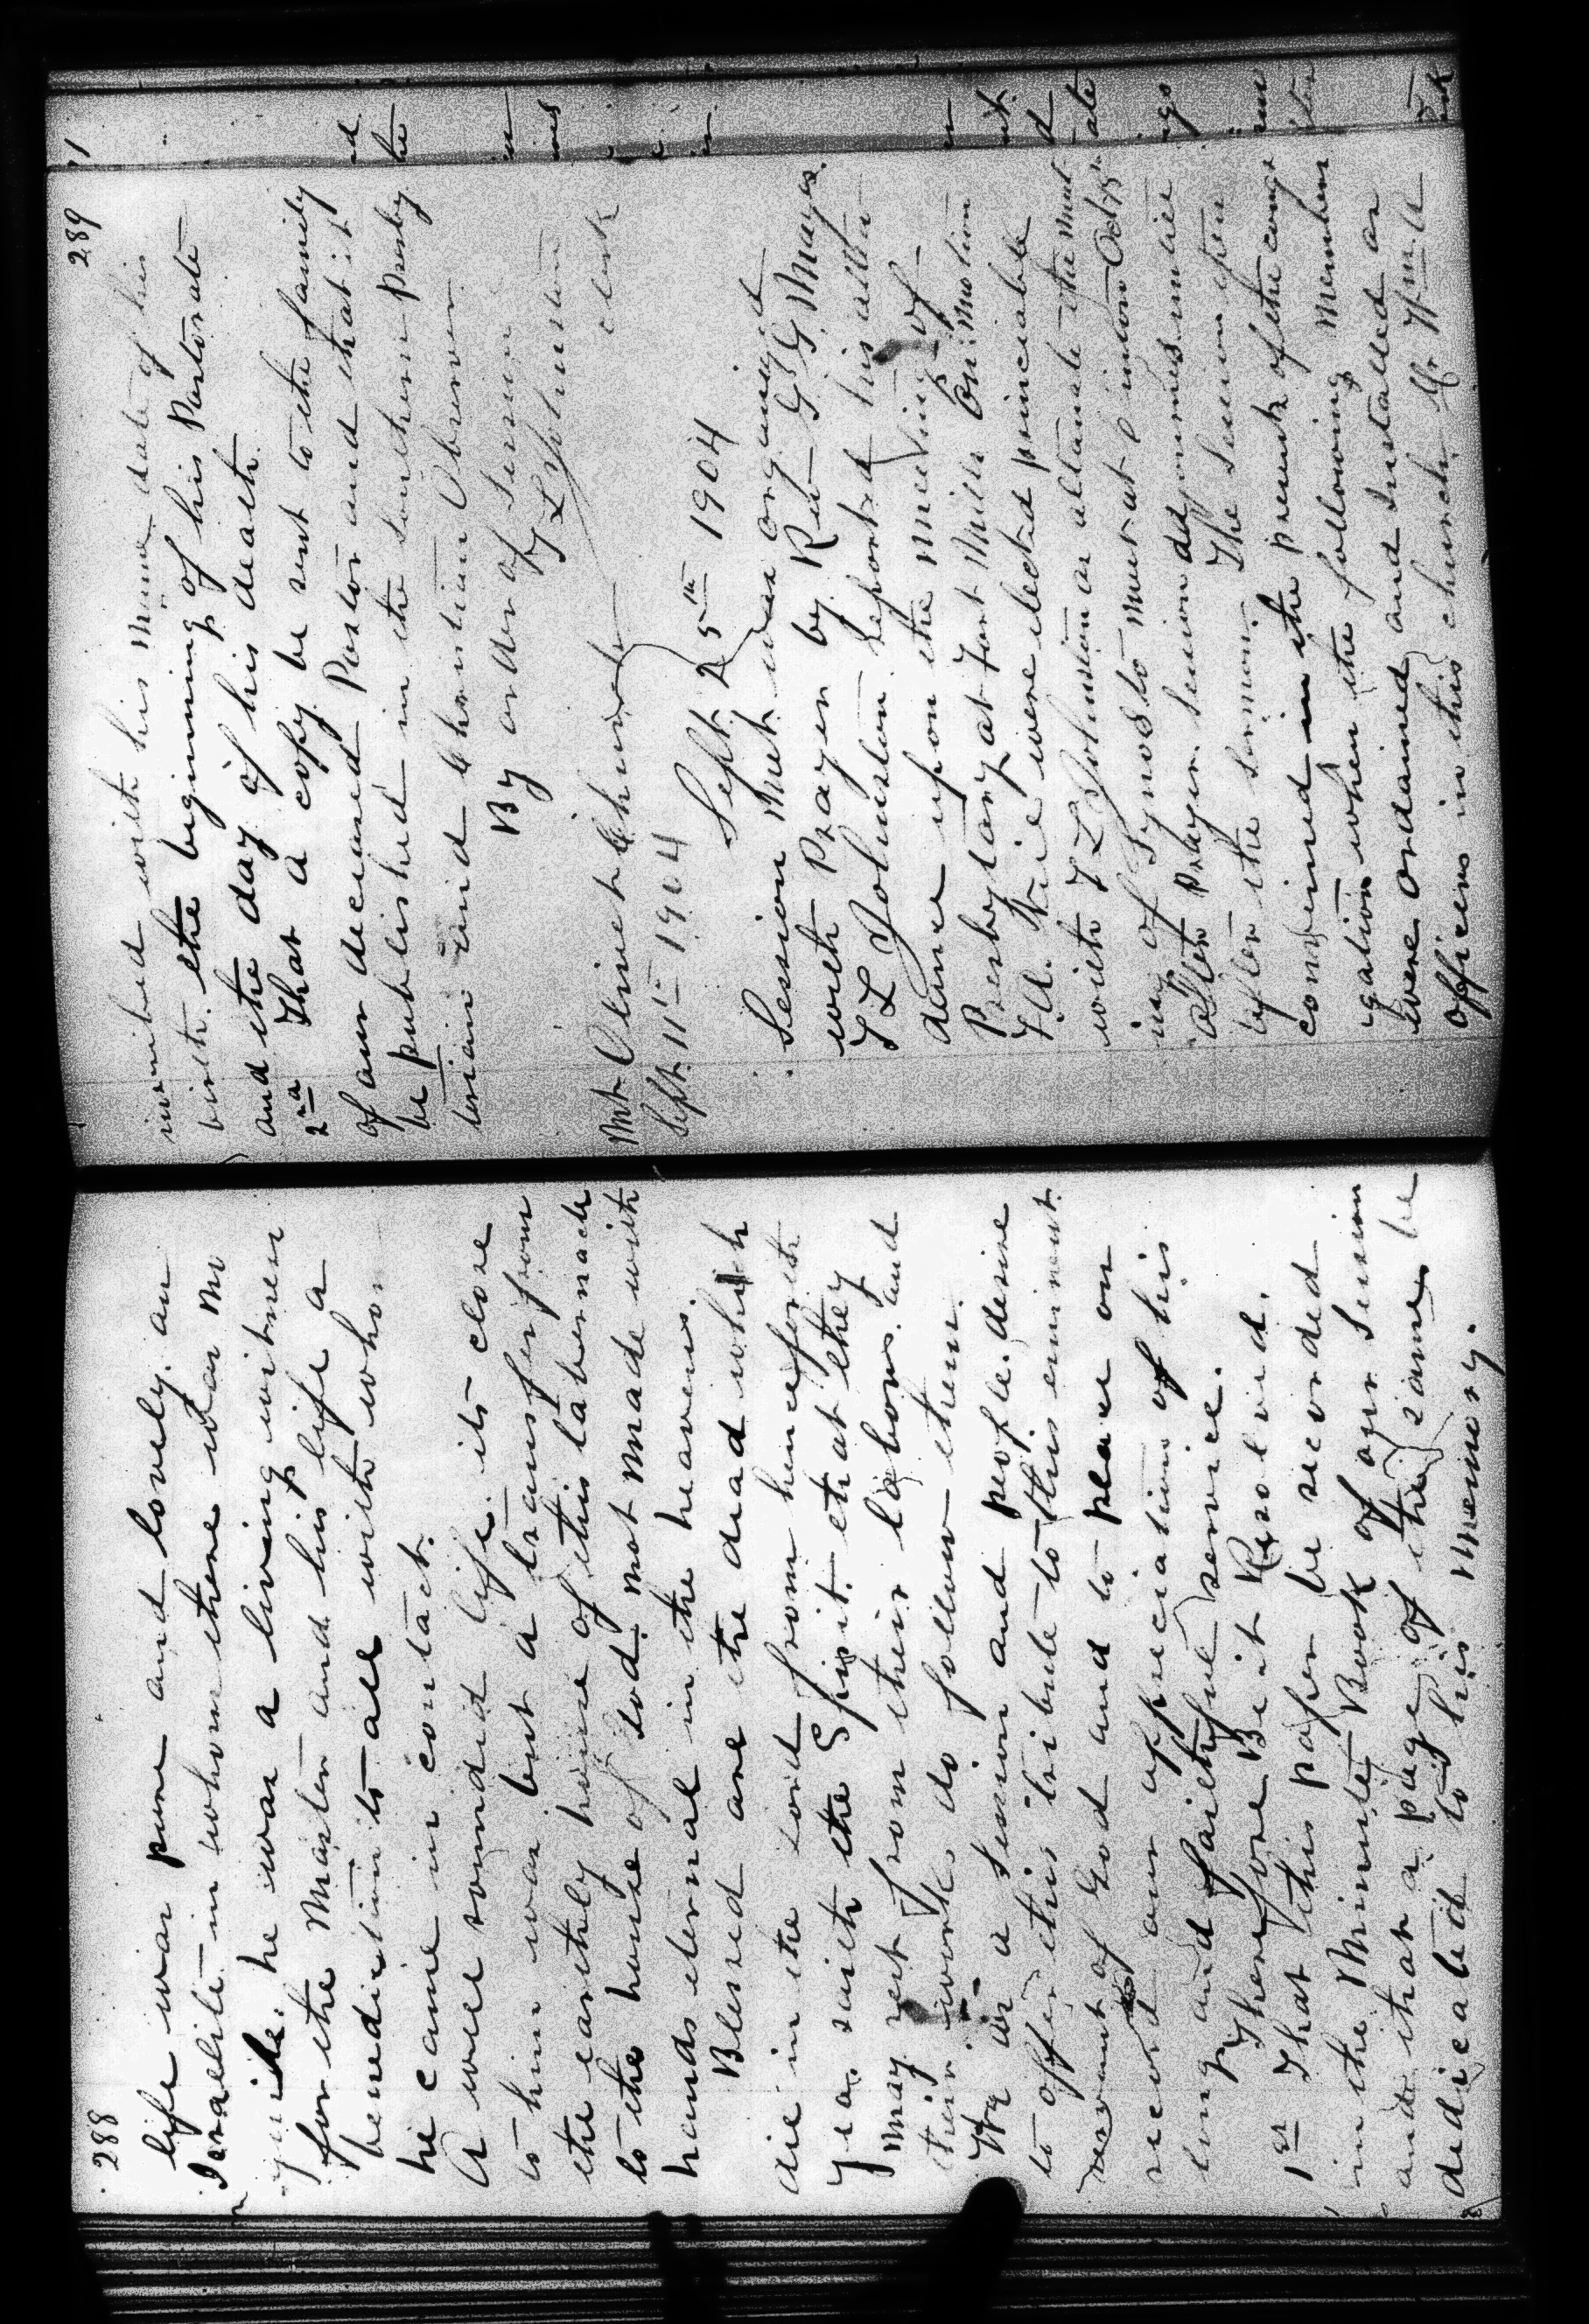 288
life was pure and lovely. an
Israelite in whom there was no
guile. he was a living witness
for the Master and his life a
benediction to all with whom
he came in contact.
A well rounded life. its close
to him was but a transfer from
the earthly house of this tabernacle
to the house of God. not made with
hands eternal in the heavens.
Blessed are the dead which
die in the Lord from henceforth
yea saith the Spirit. that they
may rest from their labors. and
their works do follow them.
We as a Session and people. desire
to offer this tribute to this eminent
servant of God and to place on
record our appreciation of his
long and faithful service.
Therefore Be it Resolved.
1st That this paper be recorded
in the Minute Book of our Session
and that a page of the same be
dedicated to his memory.
289
inscribed with his name date of his
birth. the beginning of his Pastorate
and the day of his death.
2nd That a copy be sent to the family
of our deceased Pastor and that it
be published in the Southern Presby
terian and Christian Observer
By order of Session
T L Johnston
clerk
Mt Olivet Church
Sept. 11th 1904
Sept 25th 1904
Session met was organized
with Prayer by Rev G. G. Mayes.
T L Johnston reported his atten
dance upon the meeting of
Presbytary at Fort Mill. On motion
T. A. were elected princiable
with T L Johnston as altanate to the meet
ing of Synod to meet at Union Oct
after Prayer. Session adjourned until
after the sermon. The Session again
convened in the presents of the congre
gation when the following members
were ordained and Installed as
officers in this church. Mr Wm. A